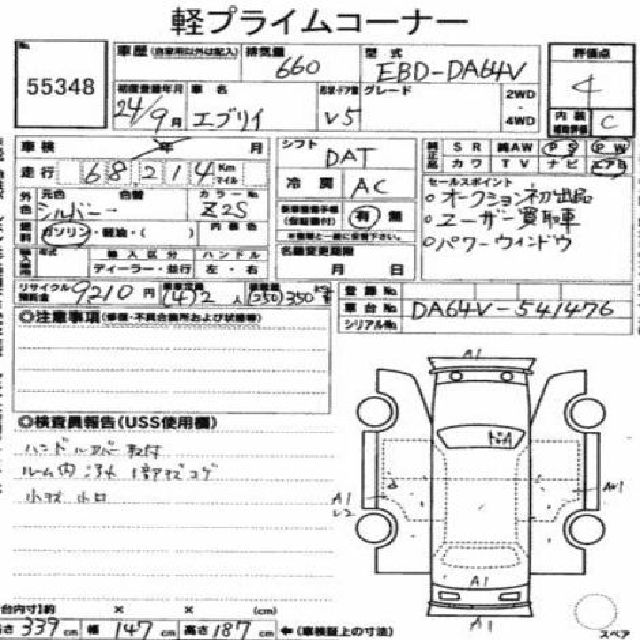 軽プライムコーナー
No. 55348
車歴 (自家用以外は記入) 排気量 660 型式 EBD-DA64V
評価点 4
初度登録年月 24/9月 車名 エブリイ 形状・ドア数 V5 グレード 2WD・4WD
内装 補助評価 C
車検 年 月
走行 68214 Km マイル
シフト DAT
冷房 AC
純正品 SR 純AW PS PW
カワ TV ナビ エアB
外色 元色 シルバー 色替 カラーNo. Z2S
燃料 ガソリン・軽油・( ) 内装色
有 無
セールスポイント
○オークション初出品
○ユーザー買取車
○パワーウインドウ
輸入区分 ハンドル
ディーラー・並行 左・右
名義変更期限
月 日
リサイクル預託金 9210円 乗車定員 (4)2人 (250)350 Kg
登録No.
車台No. DA64V-541476
シリアルNo.
◎注意事項(修復・不具合箇所および状態等)
◎検査員報告(USS使用欄)
ハンドルカバー取付
小キズ 小凹
A1
A1
A1
A1
A1
(台内寸)約 × × (cm)
長さ 339cm 幅 147cm 高さ 187cm ←(車検証上の寸法)
スペア